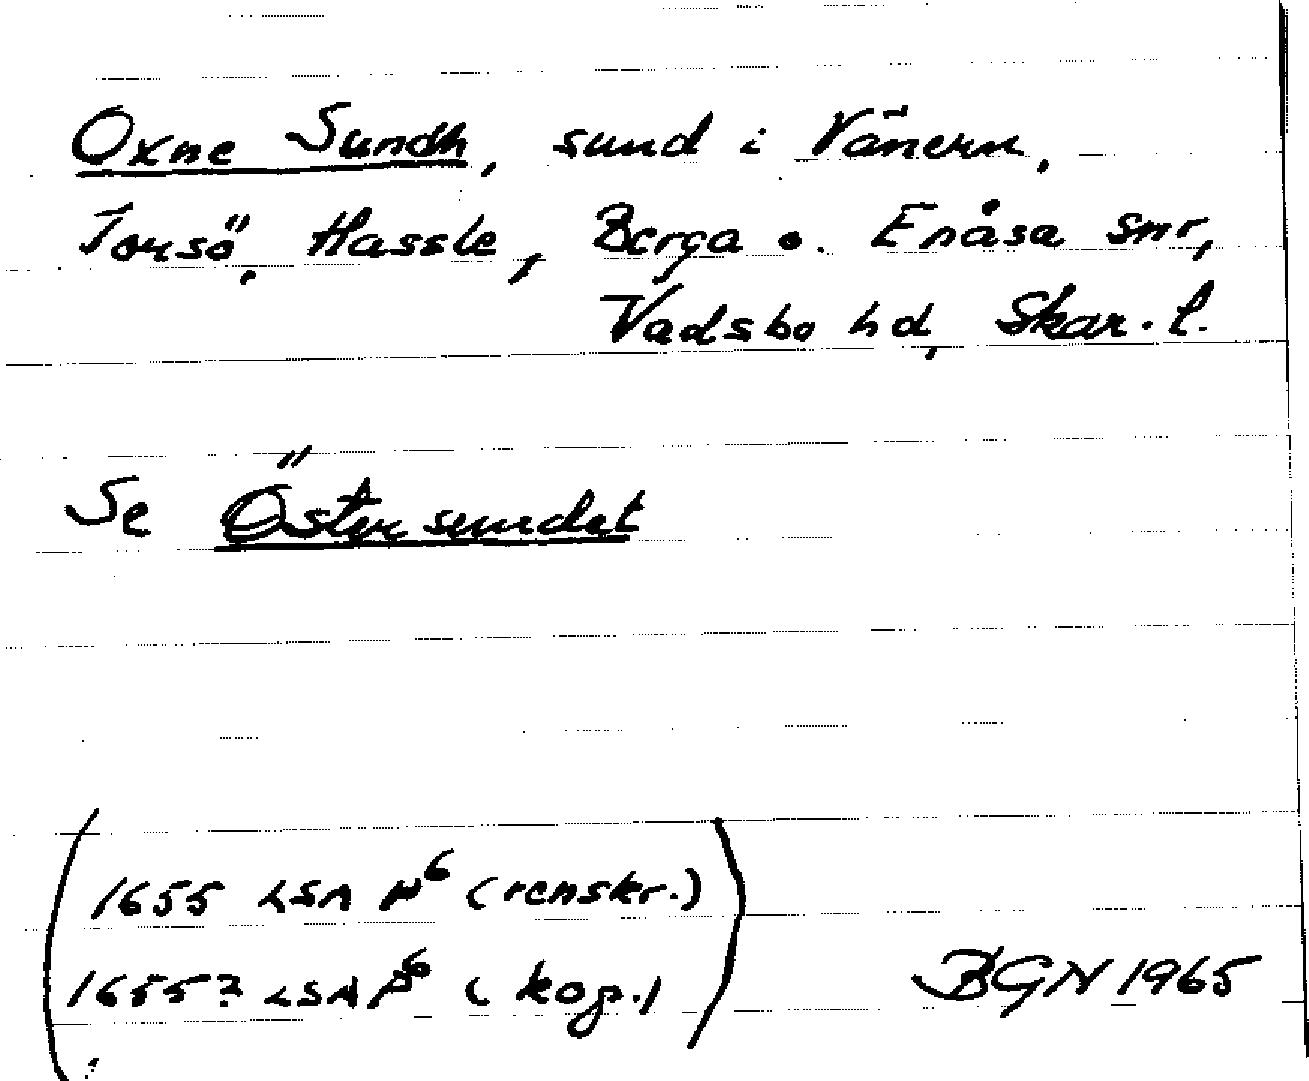 Oxne Sundh, sund i Vänern,
Torsö, Hassle, Berga o. Enåsa snr,
Vadsbo hd, Skar. l.
Se Östersundet
(1655 LSA P6 (renskr.)
1655? LSA P6 (kop.))
BGN 1965